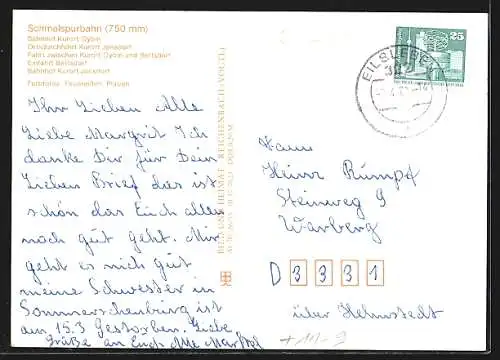 Schmalspurbahn (750 mm)
Bahnhof Kurort Oybin
Ortsdurchfahrt Kurort Jonsdorf
Fahrt zwischen Kurort Oybin und Bertsdorf
Einfahrt Bertsdorf
Bahnhof Kurort Jonsdorf
Fotofotos: Plauen
Ihr Lieben Alle
Liebe Margrit Ich
danke Dir für Dein
Lieben Brief dies ist
schön das Euch allen
noch gut geht. Mir
geht es nich gut
meine Schwester in
Sommerschenburg ist
am 15.3 Gestorben. Liebe
Grüße an Euch Alle
BILD UND HEIMAT REICHENBACH (VOGTL)
25
EILSLEBEN
Heinz Rumpf
Steinweg 9
Warberg
D 3 3 3 1
über Helmstedt